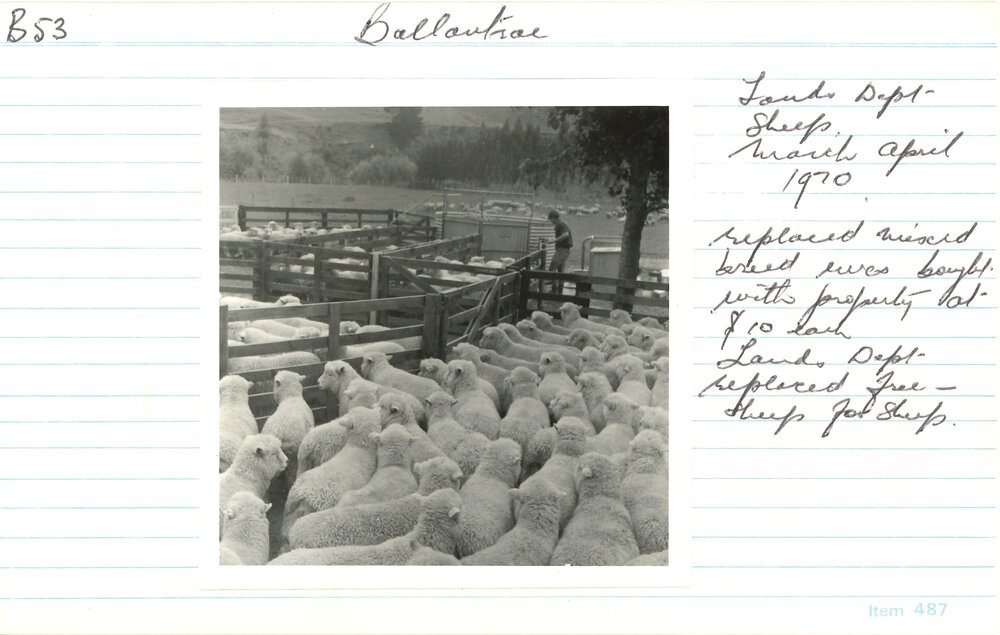 B53
Ballantrae
Lands Dept
Sheep.
March April
1970
replaced mixed
breed ewes bought
with property at
$10 each
Lands Dept
replaced free —
sheep for sheep.
Item 487